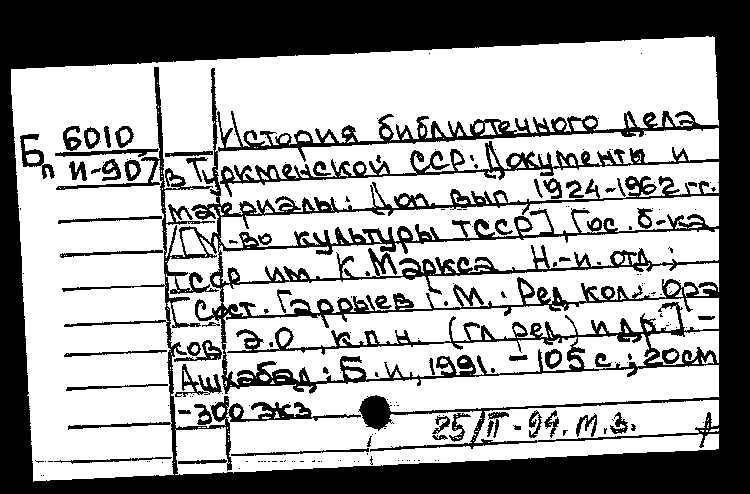 История библиотечного дела
Бп 6010
И-907
в Туркменской ССР: Документы и
материалы: Доп. вып., 1924-1962 гг.
/[М-во культуры ТССР], Гос. б-ка
ТССР им. К. Маркса. Н.-и. отд.;
[Сост. Гаррыев Г.М.; Ред. кол.: Ора
ков Э.О., к.п.н. (гл. ред.) и др.]. -
Ашхабад: Б.и., 1991. - 105 с.; 20см
- 300 экз.
25/II-94. М.З.